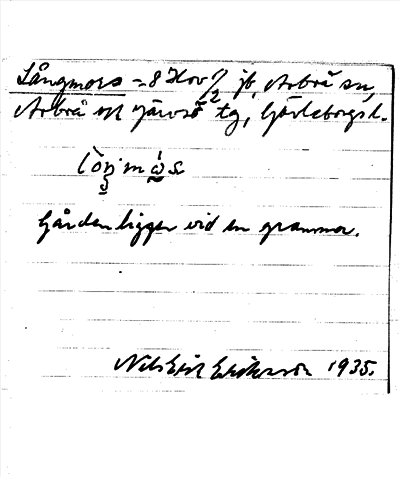 Långmors = 8 Hov ½ jb, Arbrå sn,
Arbrå och Järvsö tg, Gävleborgs l.
Gården ligger vid en granmor.
Nils Erik Eriksson 1935.